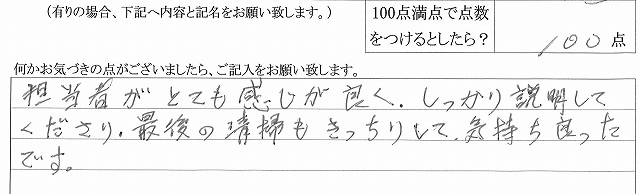 （有りの場合、下記へ内容と記名をお願い致します。）
100点満点で点数
をつけるとしたら？
100 点
何かお気づきの点がございましたら、ご記入をお願い致します。
担当者がとても感じが良く、しっかり説明して
くださり、最後の清掃もきっちりして、気持ち良った
です。